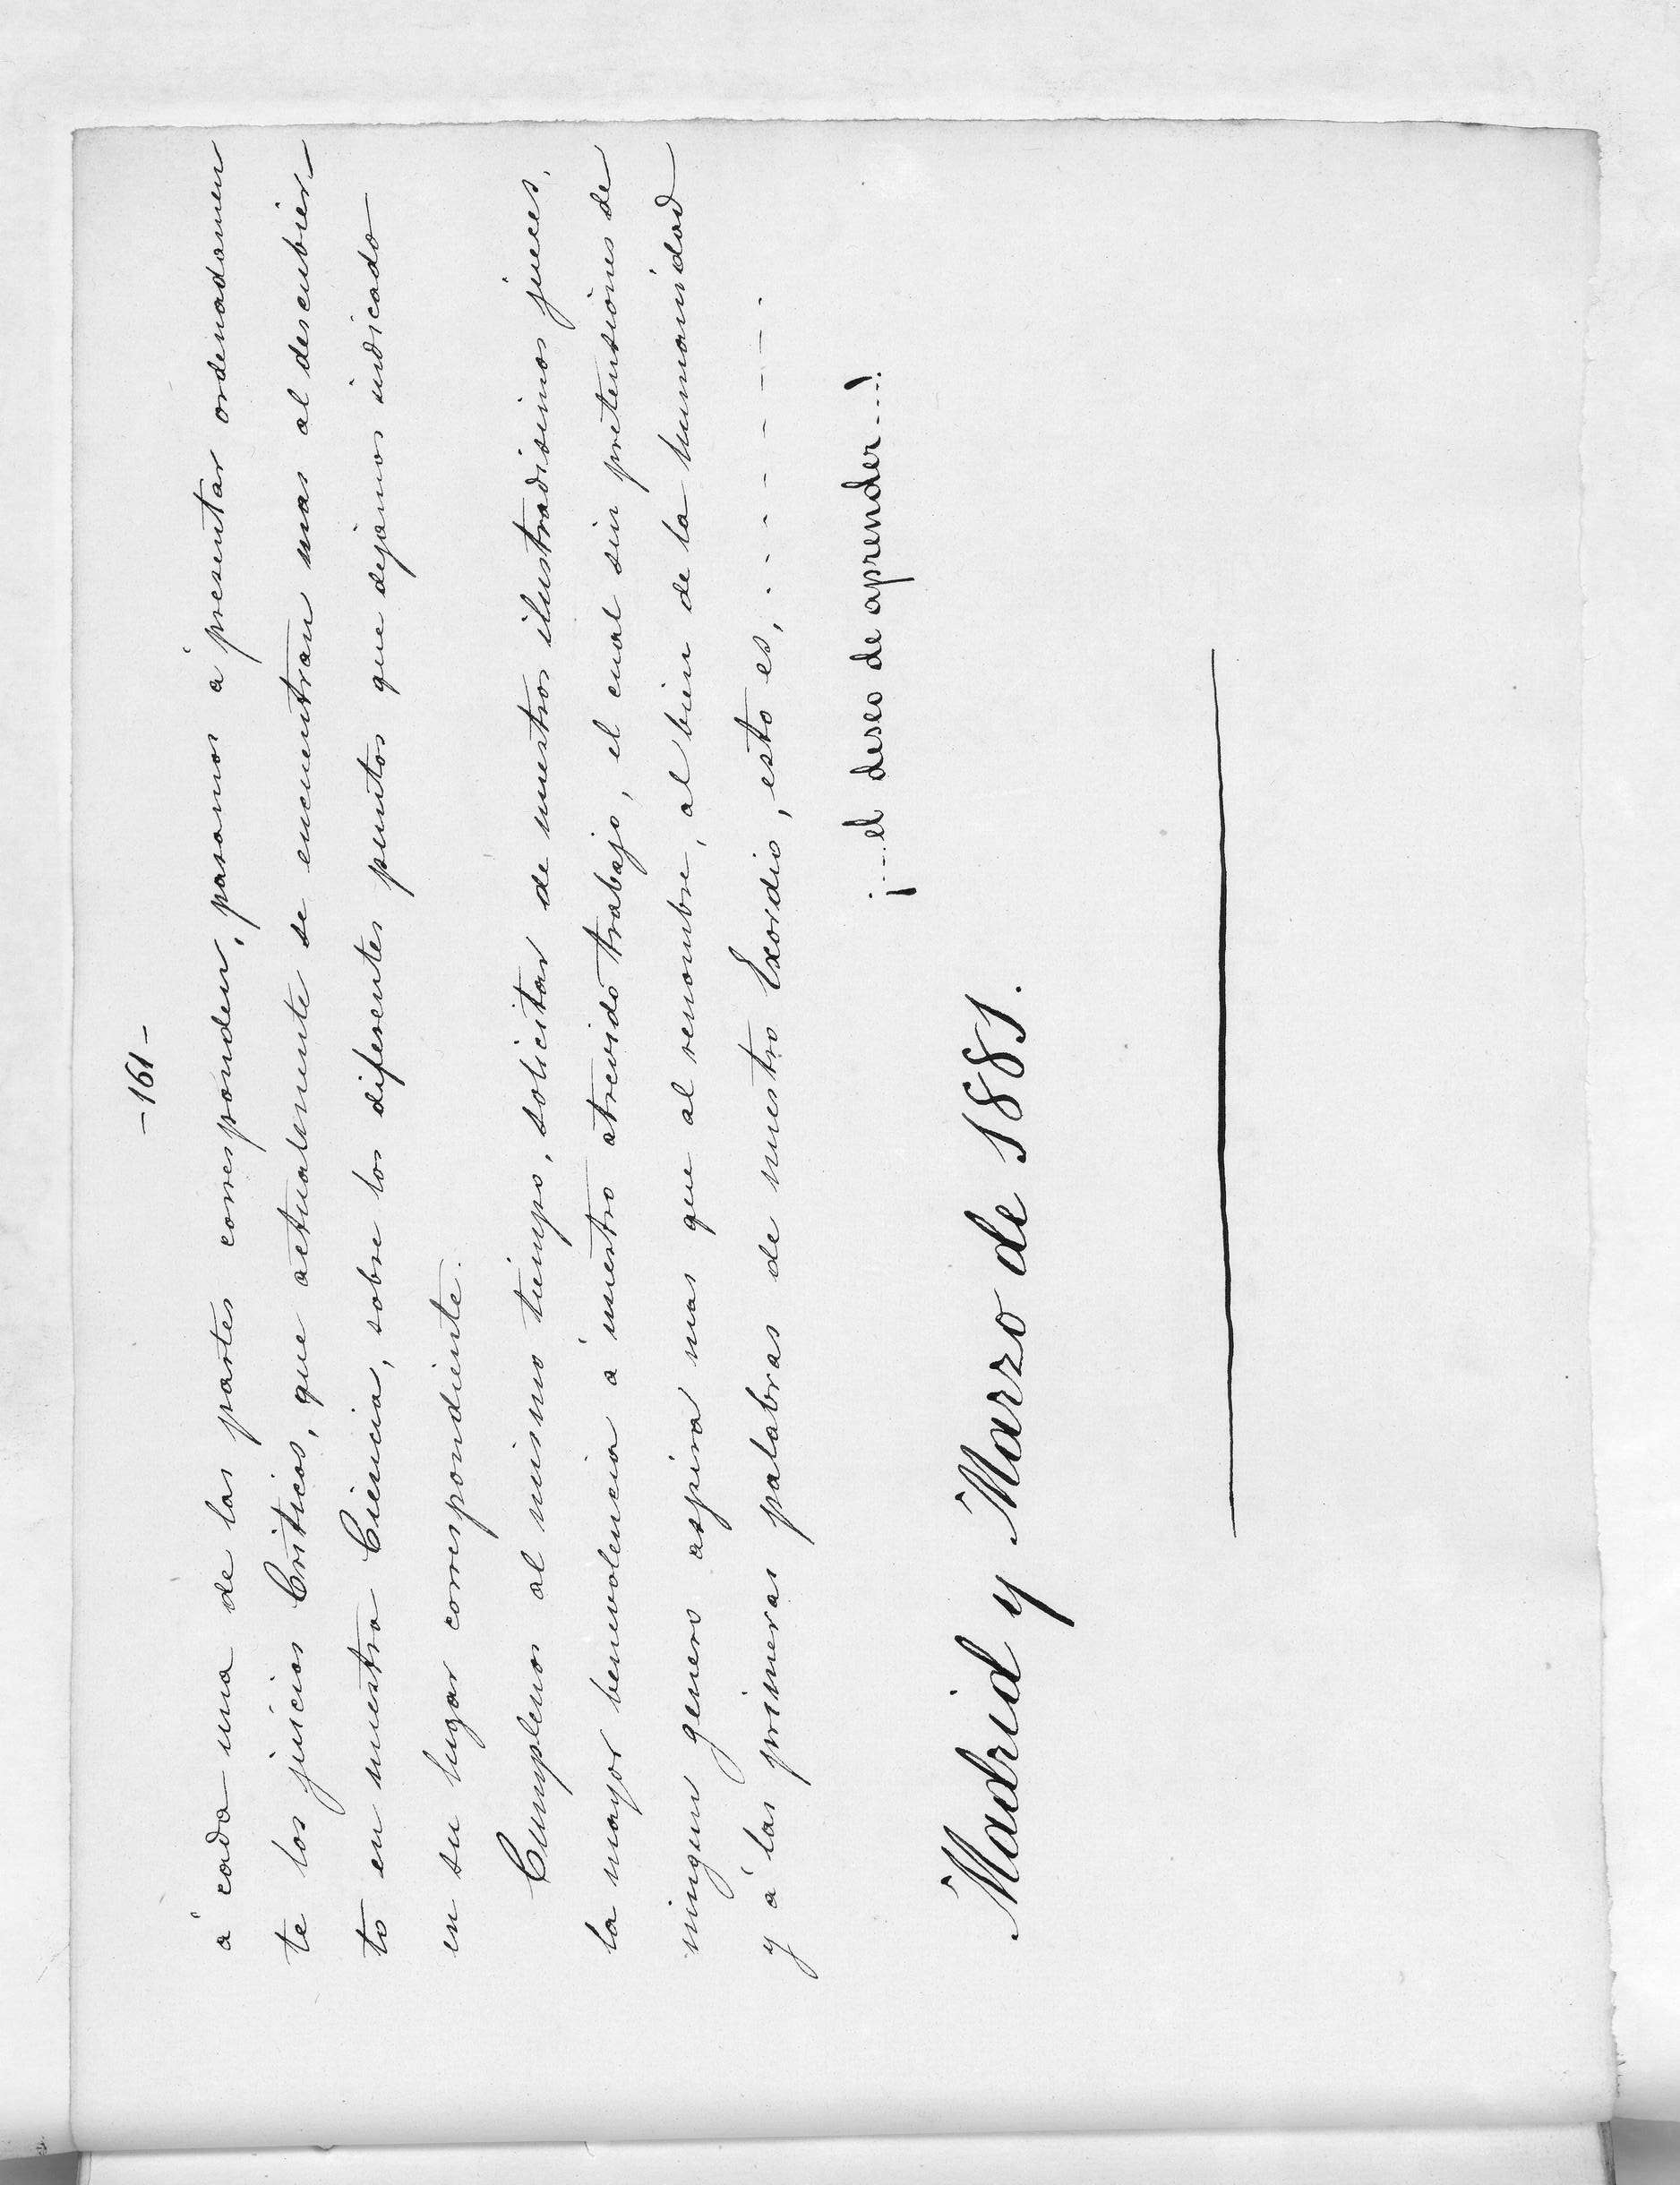 -161-
á cada una de las partes corresponden, pasamos á presentar ordenadamen
te los juicios Criticos, que actualmente se encuentran mas al descubier-
to en nuestra Ciencia, sobre los diferentes puntos que dejamos indicado
en su lugar correspondiente.
Cumplenos al mismo tiempo, solicitar de nuestros ilustradisimos jueces,
la mayor benevolencia á nuestro atrevido trabajo, el cual sin pretensiones de
ningun genero aspira mas que al renombre, al bien de la humanidad
y á las primeras palabras de nuestro Exordio, esto es, . - . - . - - - - .
¡....el deseo de aprender....!
Madrid y Marzo de 1881.